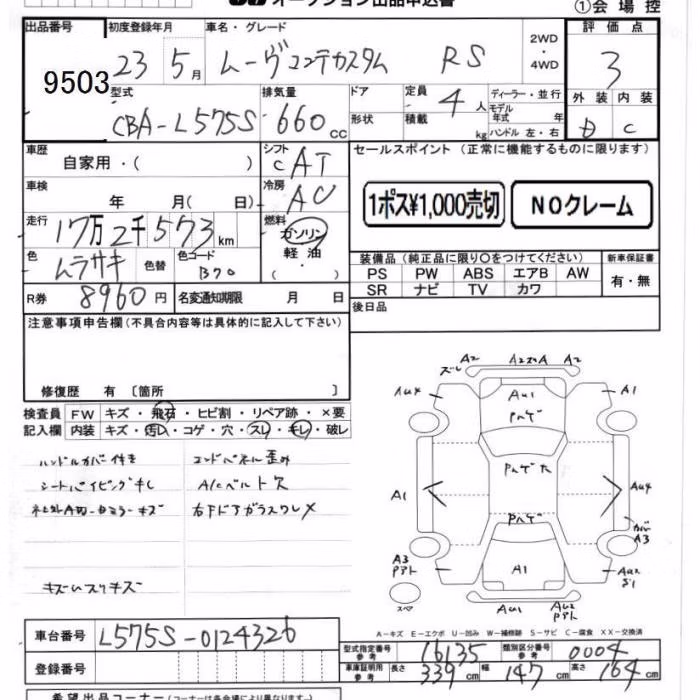 オークション出品申込書
①会場控
出品番号 初度登録年月 車名・グレード 評価点
9503 23 5月 ムーヴコンテカスタム RS 2WD・4WD 3
型式 排気量 ドア 定員 ディーラー・並行 外装 内装
CBA-L575S 660cc 4人 モデル年式 年式 D C
形状 積載 kg ハンドル 左・右
車歴 自家用・( ) シフト CAT セールスポイント (正常に機能するものに限ります)
車検 年 月( 日) 冷房 AC
1ポス¥1,000売切 NOクレーム
走行 17万2千573km 燃料 ガソリン
軽油
( )
色 ムラサキ 色替 色コード B70
装備品(純正品に限り○をつけてください) 新車保証書
PS PW ABS エアB AW 有・無
SR ナビ TV カワ
R券 8960円 名変通知期限 月 日
後日品
注意事項申告欄(不具合内容等は具体的に記入して下さい)
修復歴 有 〔箇所 〕
検査員 FW キズ・飛石・ヒビ割・リペア跡・×要
記入欄 内装 キズ・汚レ・コゲ・穴・スレ・キレ・破レ
ハンドルカバー付き エンドパネル歪み
A/Cベルト
右Fドアガラスワレ×
A2 A2 A2
ズレ
AU4 AU1 A1
A1 AU4
カバー
A3 A3
A1 AU2
S1
スペア AU1 AU2
A-キズ E-エクボ U-凹み W-補修跡 S-サビ C-腐食 XX-交換済
車台番号 L575S-0124326
登録番号
型式指定番号 参考 16135 類別区分番号 参考 0004
車庫証明用 参考 長さ 339cm 幅 147cm 高さ 164cm
希望出品コーナー